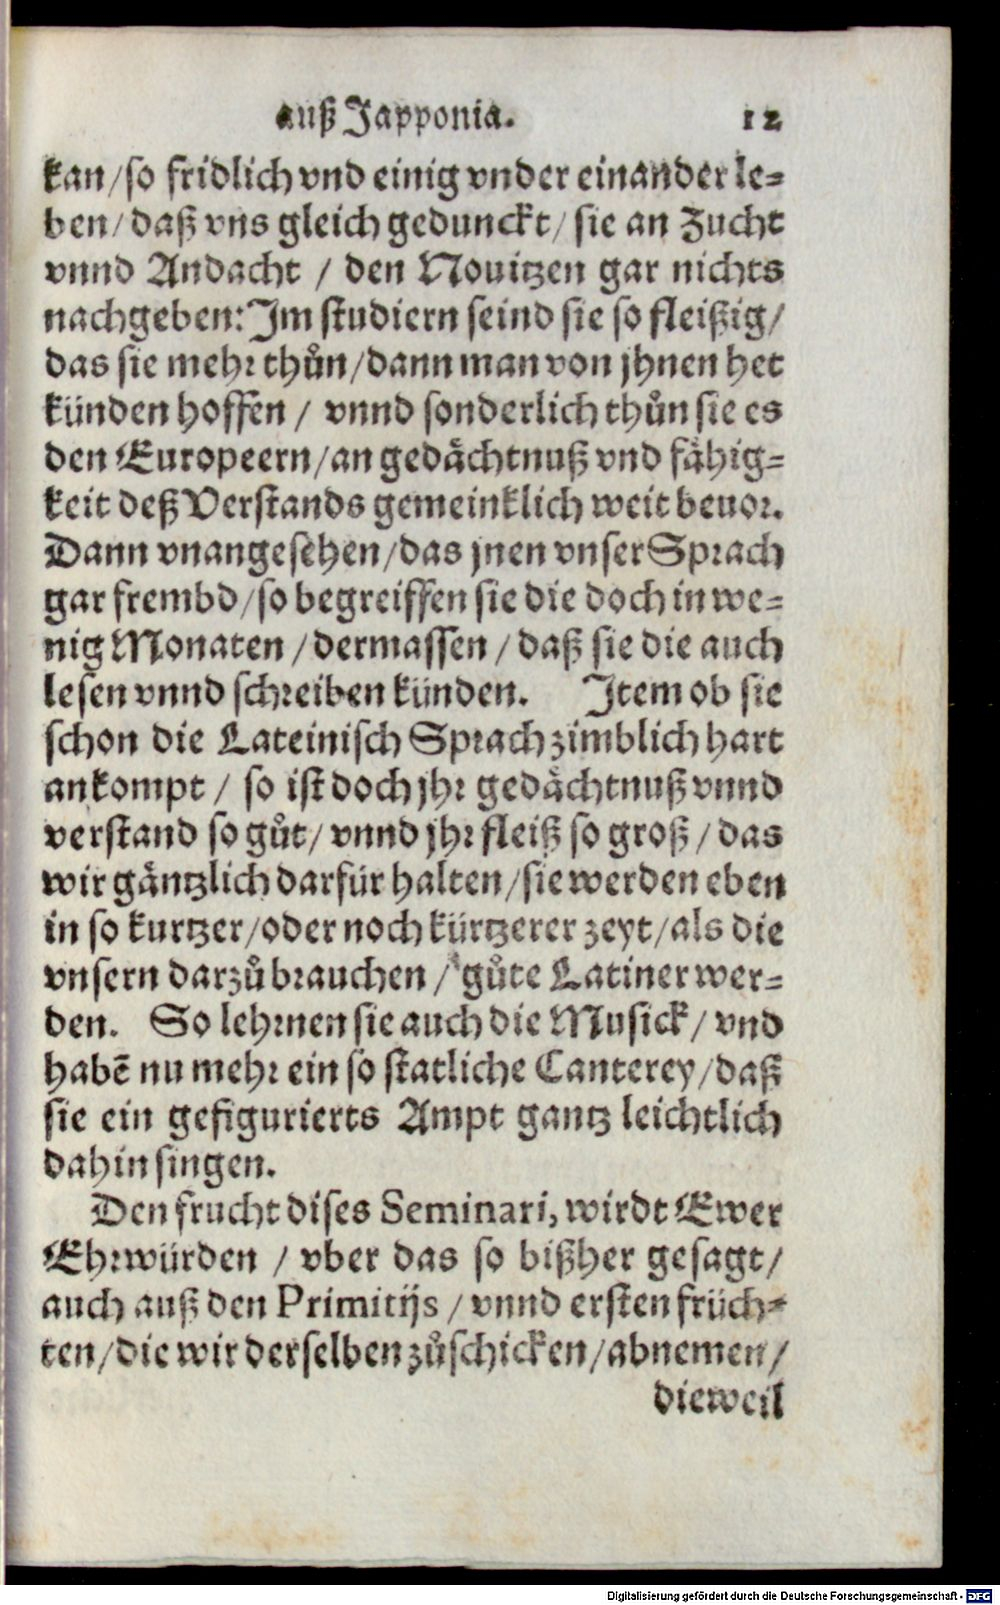 auß Japponia. 12
kan/so fridlich vnd einig vnder einander le-
ben/daß vns gleich gedunckt/ sie an Zucht
vnnd Andacht / den Nouitzen gar nichts
nachgeben: Im studiern seind sie so fleißig/
das sie mehr thůn/dann man von jhnen het
künden hoffen / vnnd sonderlich thůn sie es
den Europeern/an gedåchtnuß vnd fåhig-
keit deß Verstands gemeinklich weit beuor.
Dann vnangesehen/das jnen vnser Sprach
gar frembd/so begreiffen sie die doch in we-
nig Monaten /dermassen / daß sie die auch
lesen vnnd schreiben künden. Item ob sie
schon die Lateinisch Sprach zimblich hart
ankompt / so ist doch jhr gedåchtnuß vnnd
verstand so gůt/ vnnd jhr fleiß so groß /das
wir gåntzlich darfür halten/sie werden eben
in so kurtzer/oder noch kürtzerer zeyt/als die
vnsern darzů brauchen / gůte Latiner wer-
den. So lehrnen sie auch die Musick / vnd
habẽ nu mehr ein so statliche Canterey/daß
sie ein gefigurierts Ampt gantz leichtlich
dahin singen.
Den frucht dises Seminari, wirdt Ewer
Ehrwürden / vber das so bißher gesagt/
auch auß den Primitijs / vnnd ersten früch-
ten/die wir derselben zůschicken/abnemen/
dieweil
Digitalisierung gefördert durch die Deutsche Forschungsgemeinschaft - DFG